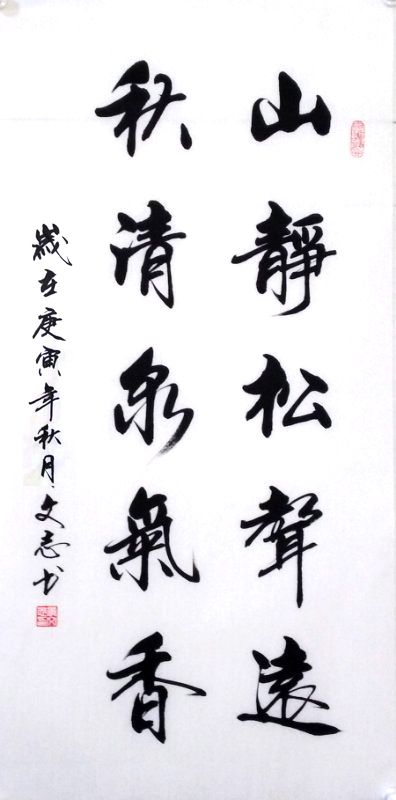 山靜松聲遠
秋清泉氣香
歲在庚寅年秋月文志书